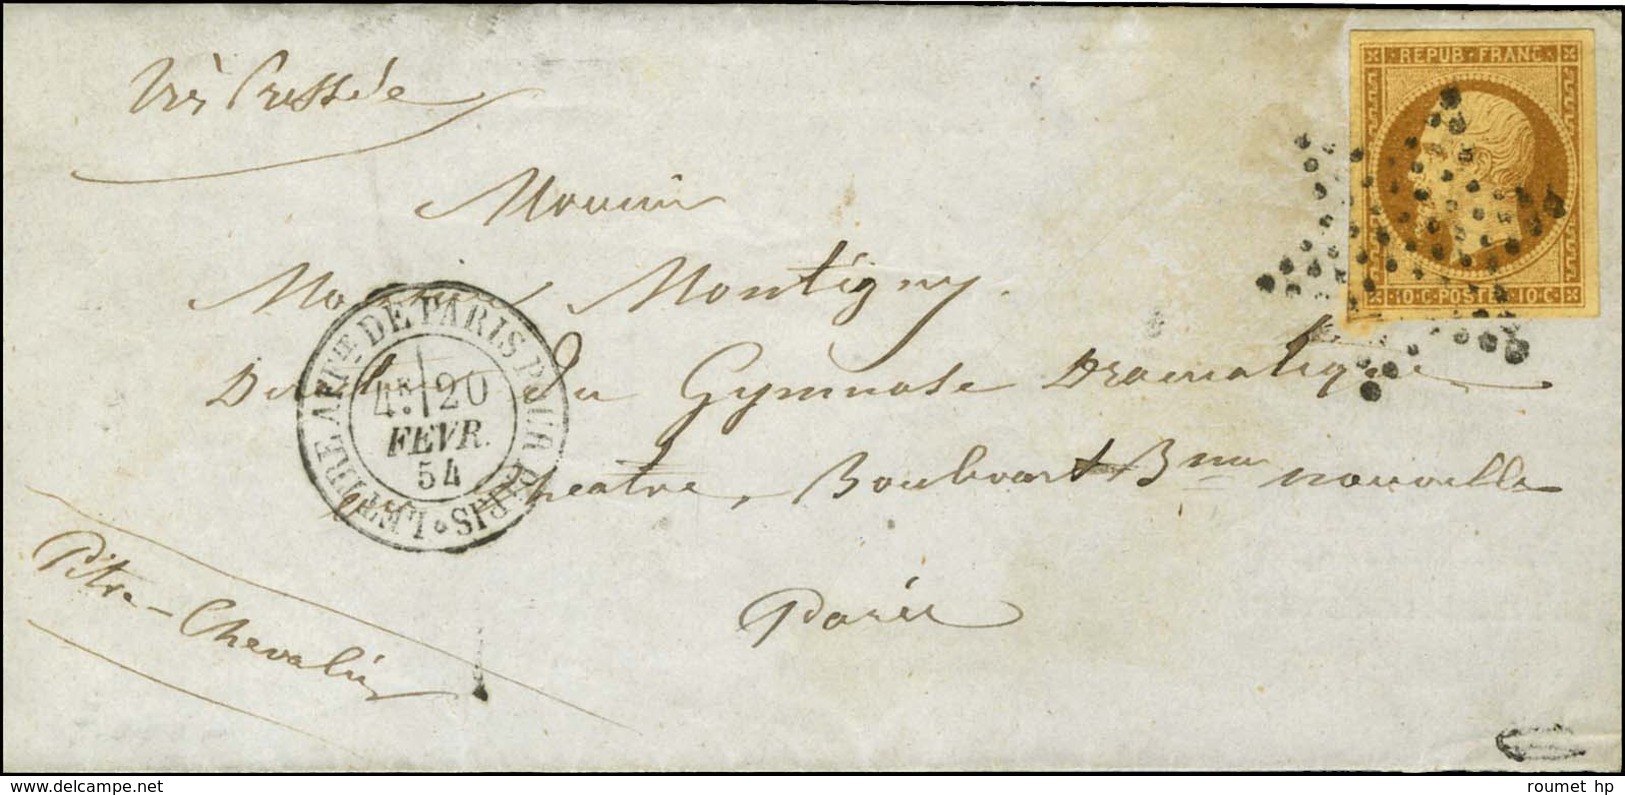 REPUB. FRANC.
Très Pressée
Monsieur
Montigny
Du Gymnase Dramatique
Theatre, Boulevart Bne nouvelle
Paris
10 c. POSTES 10 c.
LETTRE AFFie. DE PARIS POUR PARIS
4E. 20
FEVR.
54
Pitre-Chevalier
www.delcampe.net
roumet hp